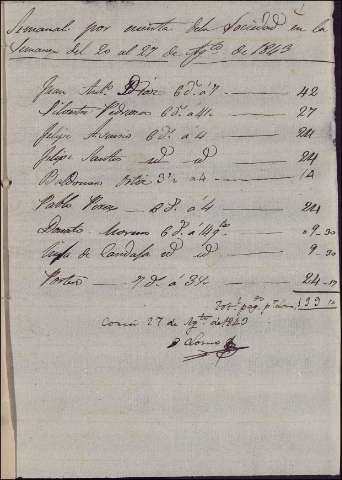 Semanal por cuenta dela Sociedad en la
Semana del 20 al 27 de Agto de 1843
Juan Anto Diaz 6 ds. á 7 42
Silvestre Pedrosa 6 ds. a 4½ 27
Felipe Asensio 6 ds. á 4 24
Felipe Santos id id 24
Baldomero Ortiz 3½ a 4 14
Pablo Perez 6 ds. á 4 24
Donato Moreno 6 ds. á 9 - 30
de Candasa id id 9 - 30
Portero 7 ds. á 3½ 24 - 17
27 de Agto de 1843